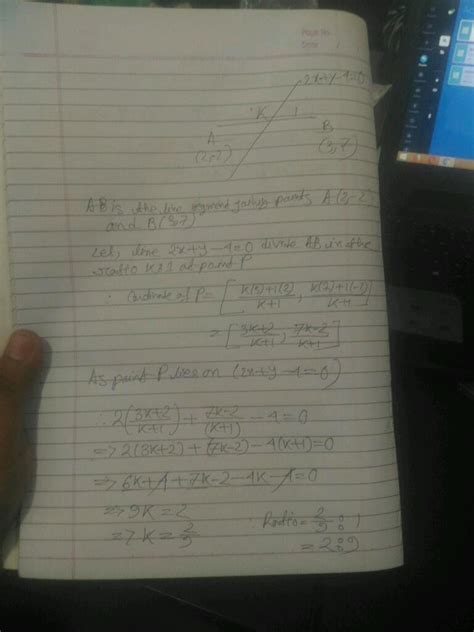 Page No.
Date
2x+y-4=0
K 1
A B
(2,-2) (3,7)
AB is the line segment joining points A(2,-2)
and B(3,7)
Let, line 2x+y-4=0 divide AB in the
ratio K:1 at point P
∴ Cordinate of P = [K(3)+1(2)/K+1, K(7)+1(-2)/K+1]
= [3K+2/K+1, 7K-2/K+1]
As point P lies on (2x+y-4=0)
∴ 2(3K+2/K+1) + 7K-2/(K+1) - 4=0
=> 2(3K+2)+(7K-2)-4(K+1)=0
=> 6K+4+7K-2-4K-4=0
=> 9K=2
=> K=2/9
∴ Ratio = 2/9 : 1
= 2:9